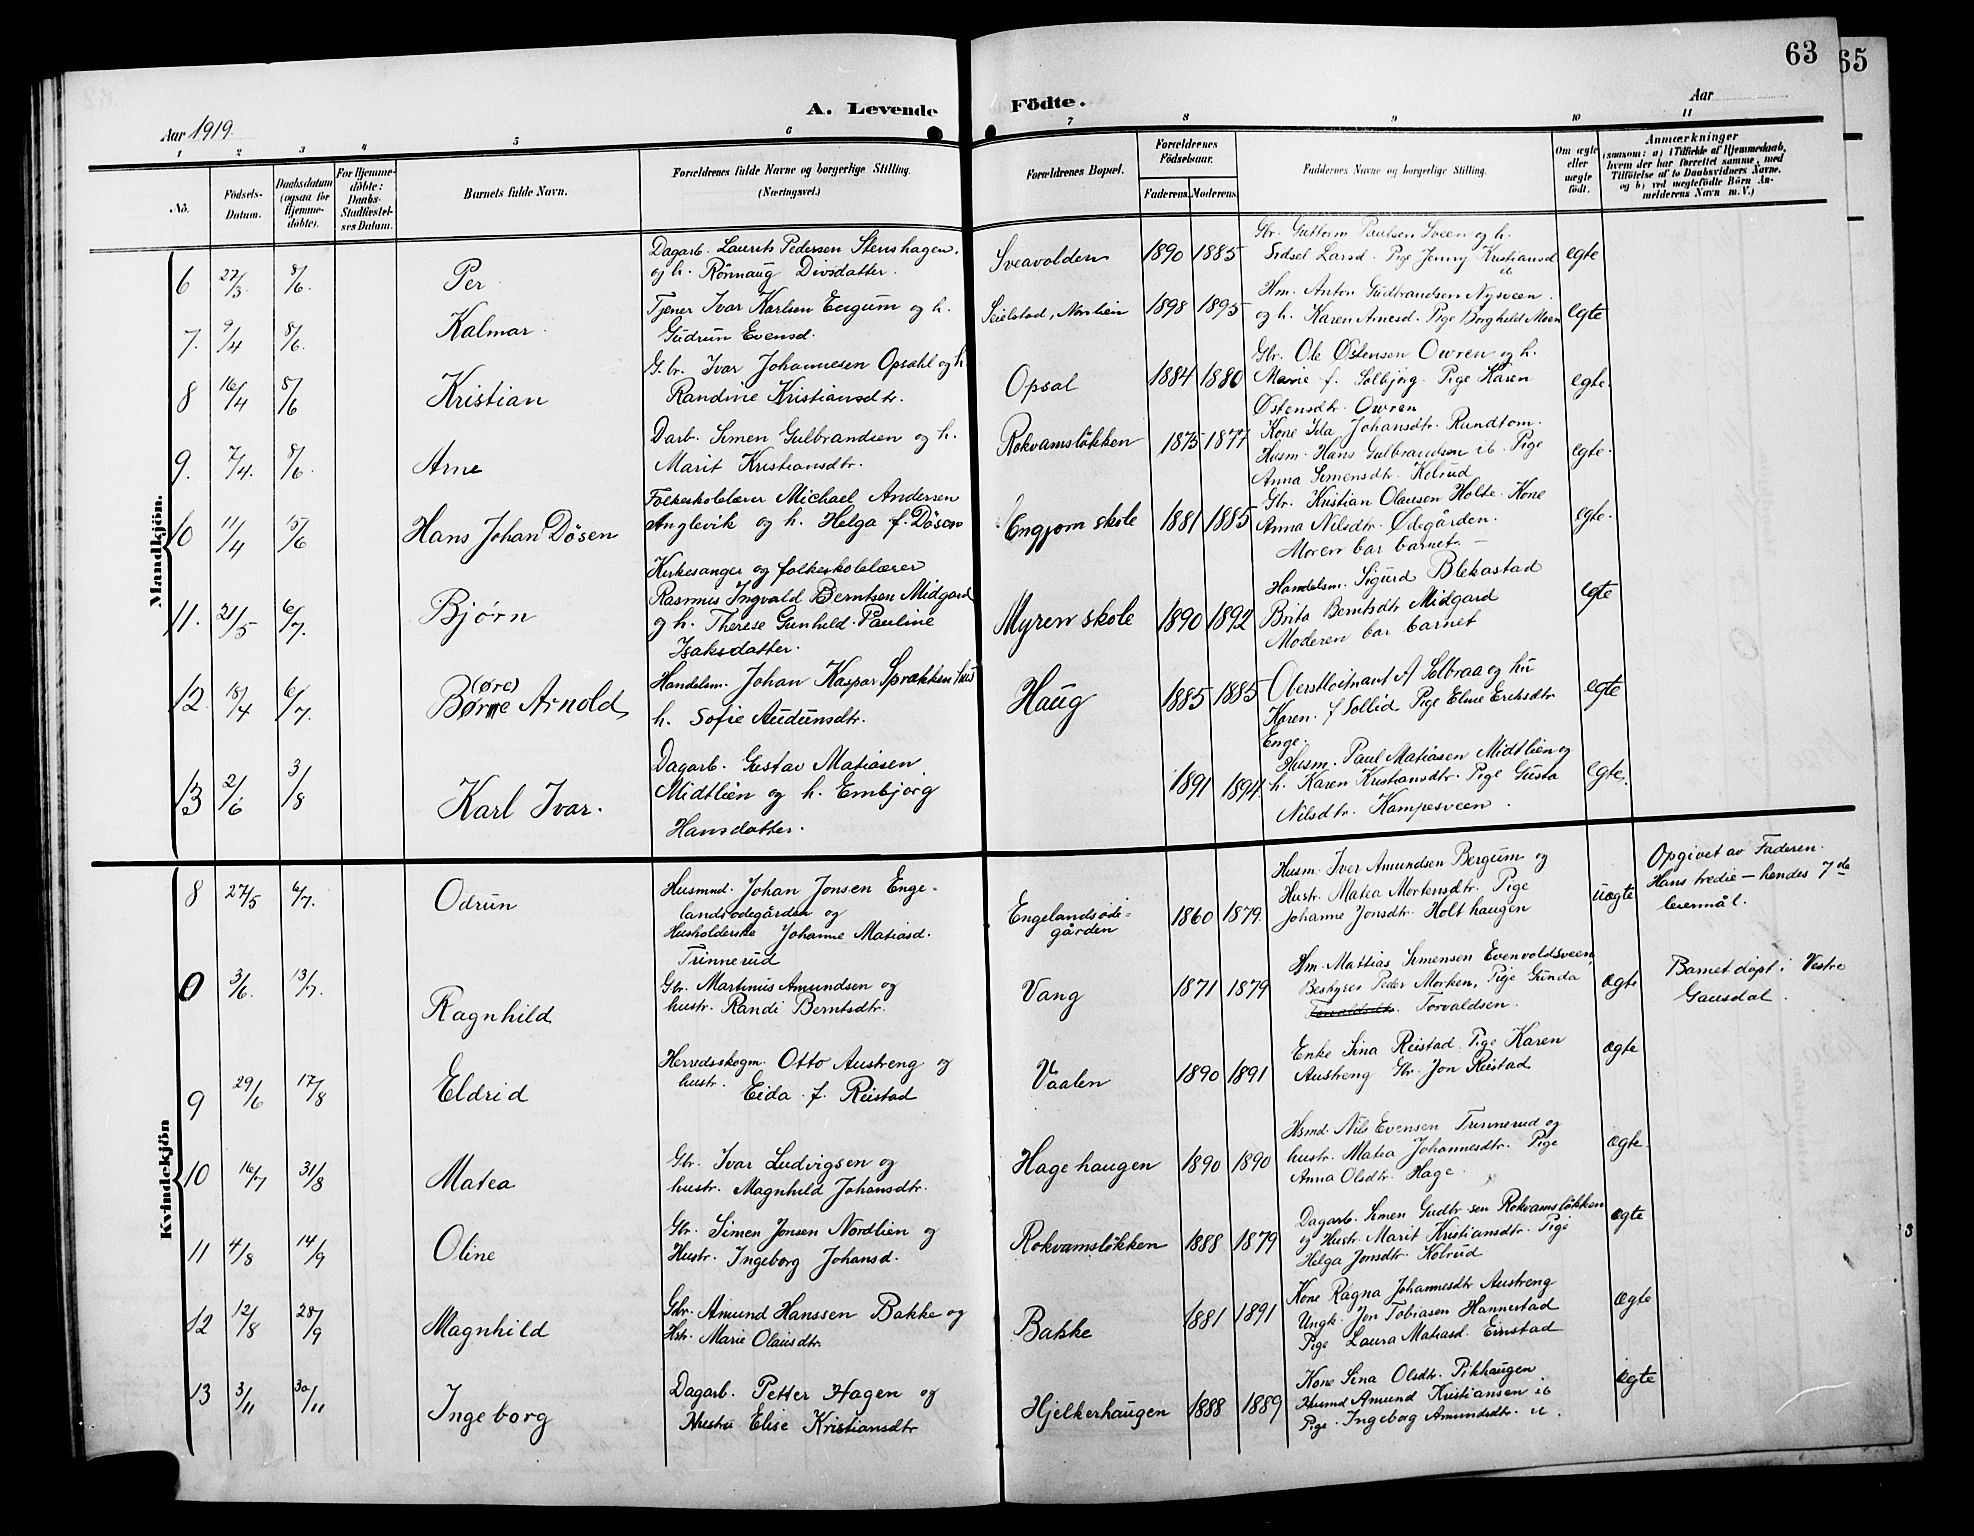 63
65
A. Levende
Födte.
Aar 1919.
Aar
1
2
3
4
5
6
7
8
9
10
11
No.
Födsels-
Datum.
Daabsdatum
(ogsaa for
Hjemme-
döbte).
For Hjemme-
döbte:
Daabs-
Stadfæstel-
ses Datum.
Barnets fulde Navn.
Forældrenes fulde Navne og borgerlige Stilling.
(Næringsvei.)
Forældrenes Bopæl.
Forældrenes
Födselsaar.
Faderens.
Moderens.
Faddernes Navne og borgerlige Stilling.
Om ægte
eller
uægte
födt.
Anmærkninger
(saasom: a) i Tilfælde af Hjemmedaab,
hvem der har forrettet samme, med
Tilföielse af to Daabsvidners Navne,
og b) ved uægtefödte Börn An-
melderens Navn m. V.)
Mandkjön.
6 27/3 8/6. Per
Dagarb. Laurits Pedersen Stenshagen.
og h. Rönnaug
Sveavolden 1890 1885
Gbr. Guttorm Paulsen Sveen og h.
Sidsel Larsd. Pige Jenny Kristiansd
ib
egte
7. 9/4 8/6. Kalmar
Tjener Ivar Karlsen Engum og h.
Gudrun Evensd.
Seielstad, Nordlien 1898 1895
Hm. Anton Gudbrandsen Nysveen
og h. Karen Arnesd. Pige Borghild Moen
egte
8 16/4 8/6 Kristian
G.br. Ivar Johannesen Opsahl og h.
Randine Kristiansdtr.
Opsal 1884 1880
Gbr. Ole Østensen Owren og h.
Marie f. Solbjørg. Pige Karen
Østensdtr. Owren
egte.
9. 7/4. 8/6. Arne
Darb. Simen Gulbrandsen og h.
Marit Kristiansdtr.
Rokvamsløkken 1875 1877
Kone Ida Johansdtr. Rundtom.
Husm. Hans Gulbrandsen ib. Pige
Anna Simensdtr. Kolrud
egte.
10 11/4 15/6 Hans Johan Dösen
Folkeskolelærer Michael Andersen
Anglevik og h. Helga f. Dösen
Engjom skole 1881 1885
Gbr. Kristian Olausen Holte. Kone
Anna Nilsdtr. Ødegården.
Moren bar barnet.
egte.
11. 21/5 6/7. Bjørn
Kirkesanger og folkeskolelærer
Rasmus Ingvald Berntsen Midgard
og h. Therese Gunhild Pauline
Isaksdatter.
Myren skole 1890 1892
Handelsm. Sigurd Blekastad
Brita Berntsdtr Midgard
Moderen bar barnet
egte
12. 18/4 6/7. (øre)
Børre Arnold
Handelsm. Johan Kaspar Sprækkenhus
h. Sofie Audunsdtr.
Haug 1885 1885
Oberstløitnant A Solbraa og hu
Karen f Sollid Pige Eline Eriksdtr
Enge.
egte
13 2/6 3/8 Karl Ivar.
Dagarb. Gustav Matiasen
Midtlien og h. Embjørg
Hansdatter.
1891 1894
Husm. Paul Matiasen Midtlien og
h. Karen Kristiansdtr. Pige Gusta
Nilsdtr. Kampesveen.
egte.
Kvindekjön
8 27/5 6/7. Odrun
Husmnd. Johan Jonsen Enge-
landsødegården og
Husholderske Johanne Matiasd.
Trinnerud
Engelandsøde-
gården 1860 1879.
Husm. Iver Amundsen Bergum og
Hustr. Matea Mortensdtr. Pige
Johanne Jonsdtr. Holthaugen
uegte
Opgivet av Faderen.
Hans tredie – hendes 7de
leiermål.
0 3/6. 13/7. Ragnhild
Gbr. Martinus Amundsen og
hustr. Randi Berntsdtr.
Vang 1871 1879
Hm. Mattias Simensen Evenvoldsveen
Bestyrer Peder Morken, Pige Gunda
Torvaldsen.
ægte
Barnet døpt i Vestre
Gausdal.
9 29/6 17/8 Eldrid
Herredsskogm. Otto Austreng og
hustr. Eida f. Reistad
Vaalen 1890 1891
Enke Sina Reistad. Pige Karen
Austreng Gbr. Jon Reistad
ægte
10 16/7 31/8 Matea
Gbr. Ivar Ludvigsen og
hustr. Magnhild Johansdtr.
Hagehaugen 1890 1890
Hsmd. Nils Evensen Trinnerud og
hustr. Matea Johannesdtr. Pige
Anna Olsdtr. Hage.
ægte
11 4/8 14/9 Oline
Gbr. Simen Jonsen Nordlien og
Hustr. Ingeborg Johansd.
Rokvamsløkken 1888 1879
Dagarb. Simen Gudbr.sen Rokvamsløkken
og Hustr. Marit Kristiansdtr. Pige
Helga Jonsdtr. Kolrud
ægte
12 12/8 28/9 Magnhild
Gbr. Amund Hanssen Bakke og
Hstr. Marie Olausdtr.
Bakke 1881 1891
Kone Ragna Johannesdtr Austreng
Ungk. Jon Tobiasen Hannestad
Pige Laura Matiasd. Einstad
Ægte
13 3/11 30/11 Ingeborg
Dagarb. Petter Hagen og
Hustru Elise Kristiansdtr
Hjelkerhaugen 1888 1889
Kone Sina Olsdtr. Pikhaugen
Husmd Amund Kristiansen ib
Pige. Ingeborg Amundsdtr. ib.
ægte
3